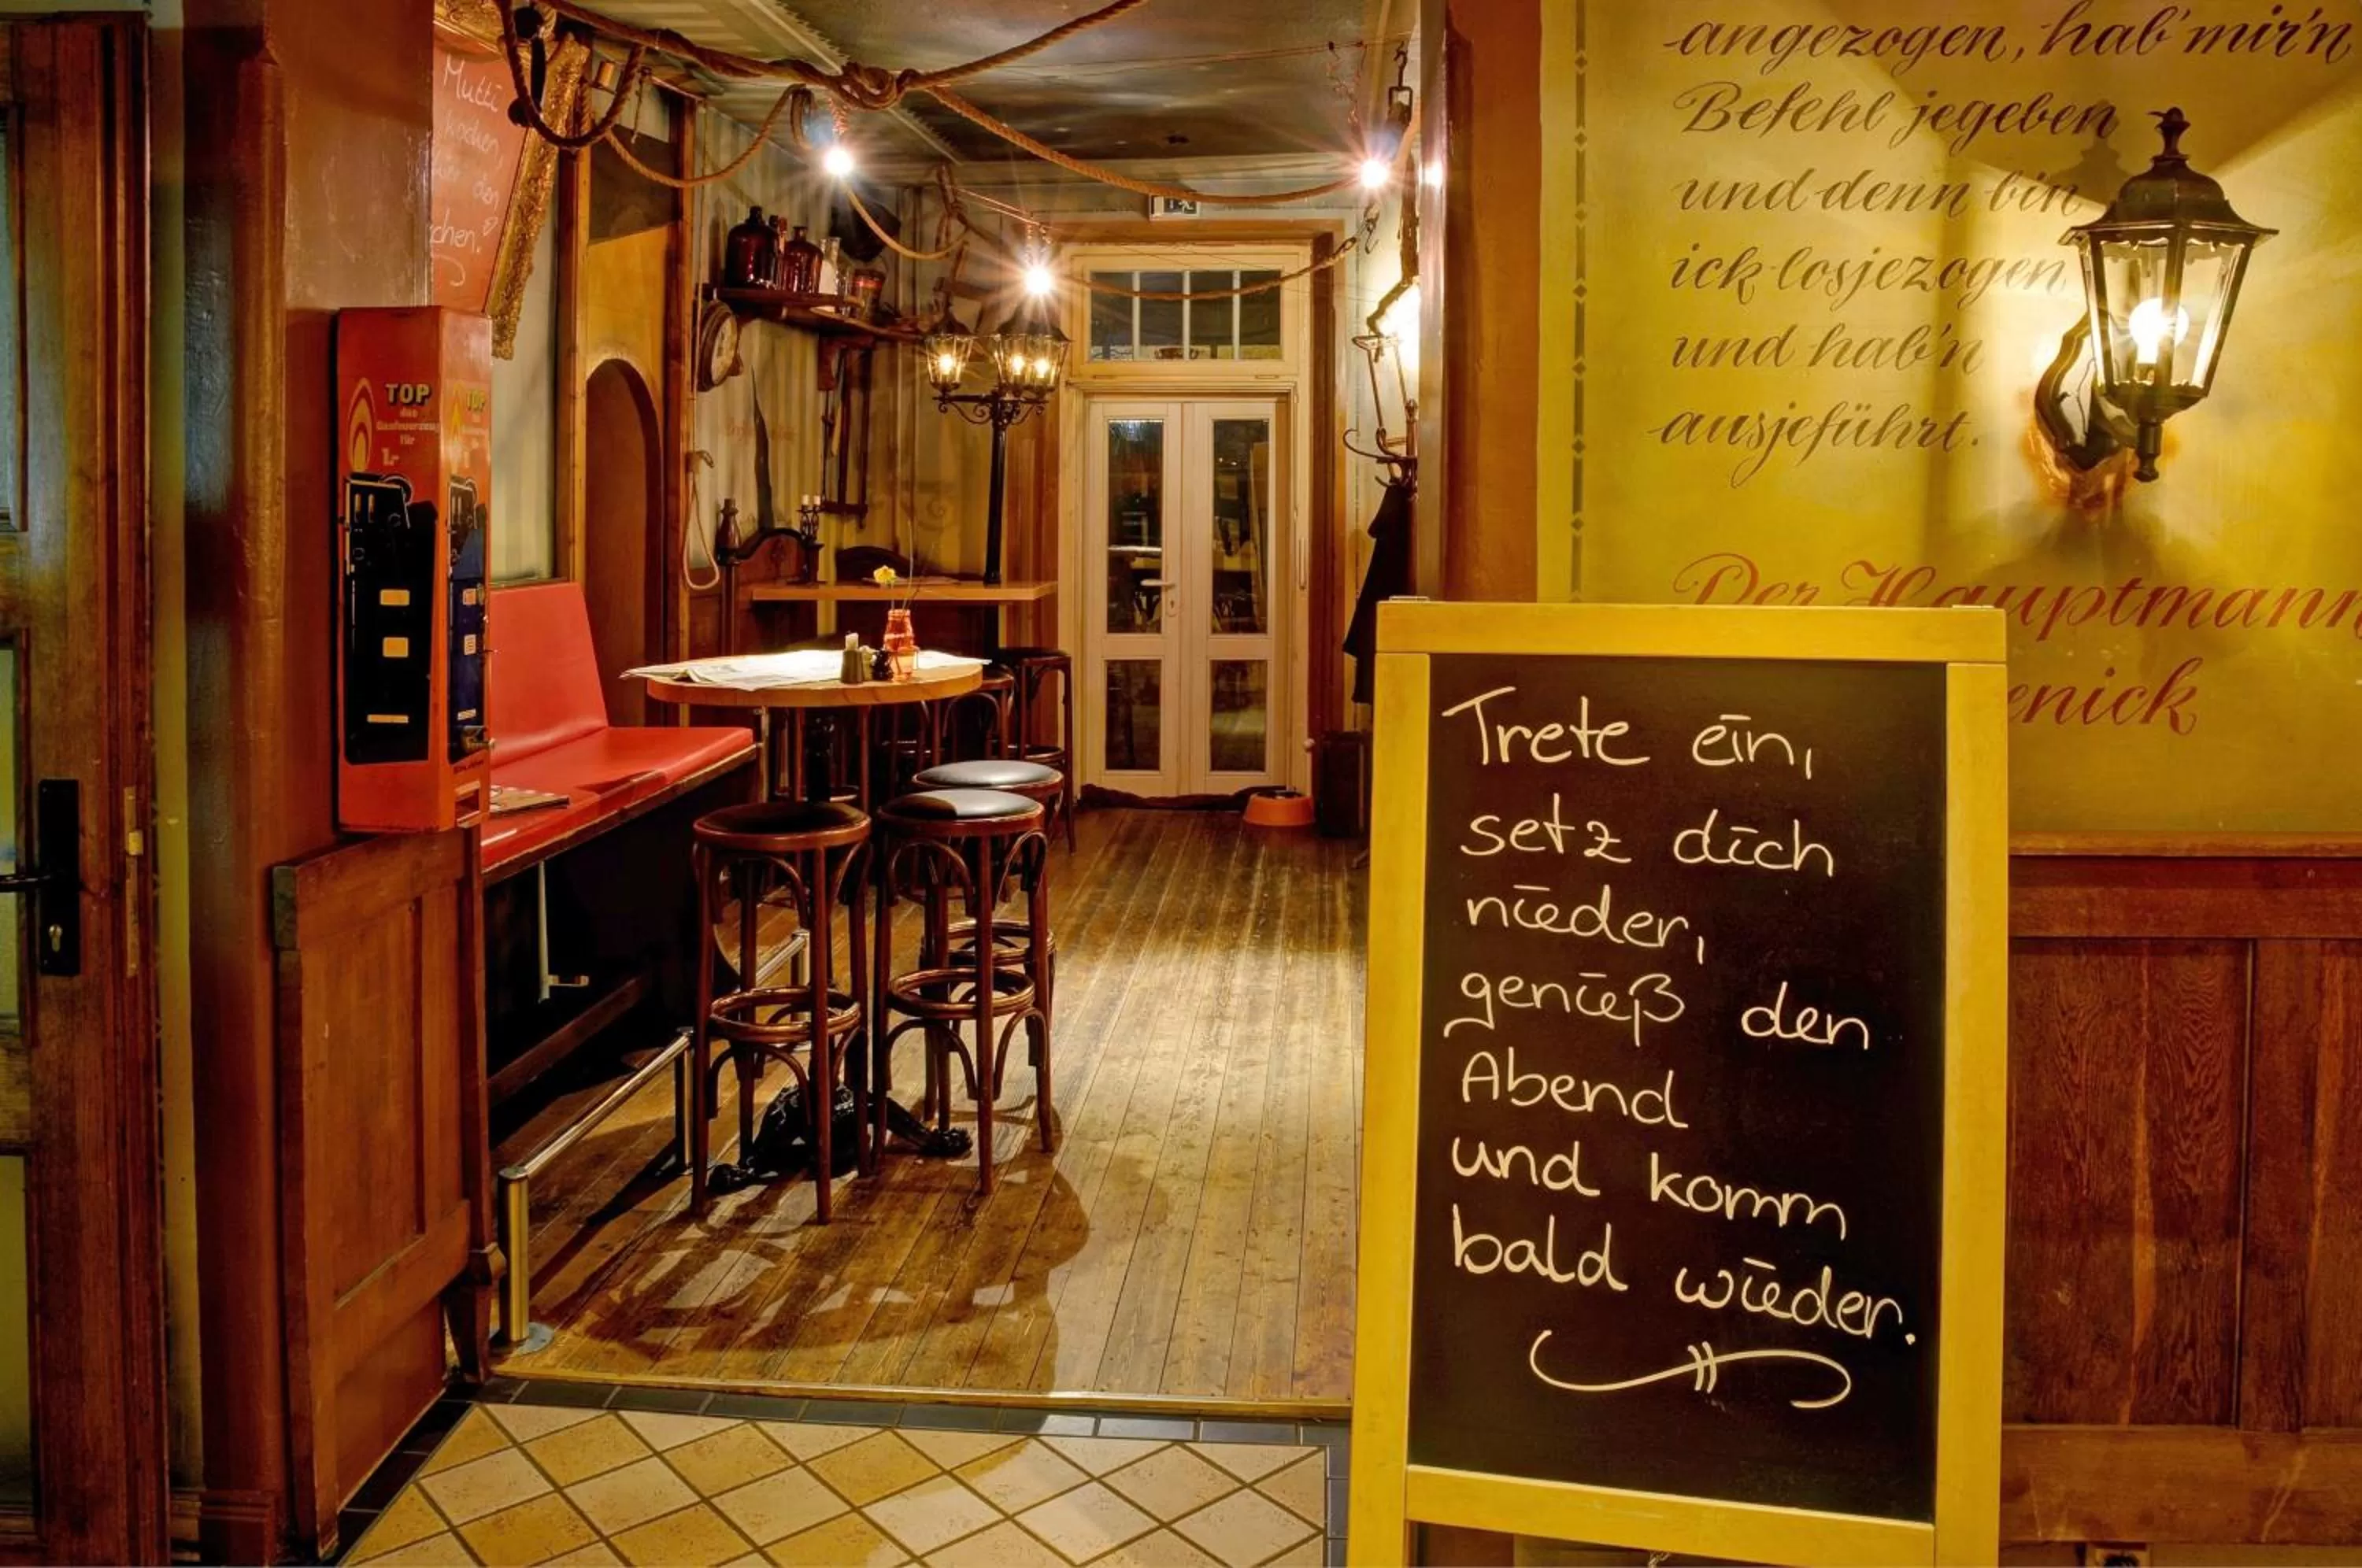 Mutti
kochen,
den
TOP
das
für
1.-
TOP
angezogen, hab' mir'n
Befehl jegeben
und denn bin
ick losjezogen
und hab'n
ausjeführt.
Der Hauptmann
enick
Trete ein,
setz dich
nieder,
genieß den
Abend
und komm
bald wieder.